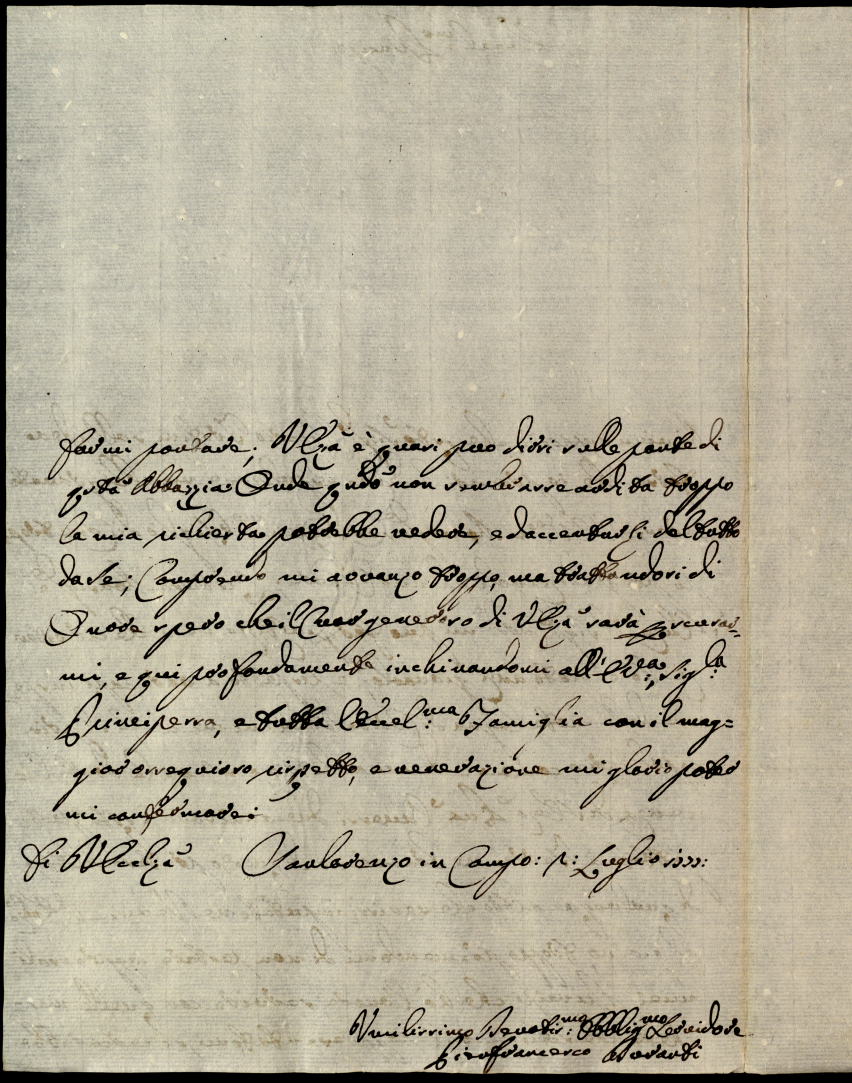 farmi portare; V. Ecc.za è quasi puo dirsi sulle porte di
q.sta Abbazzia: Onde q.ndo non sembrasse ardita troppo
la mia richiesta potrebbe vedere, ed accertarsi del tutto
da se; Comprendo mi avanzo troppo, ma trattandosi di
Onore spero che il Cuor generoso di V. Ecc.za sarà p scusar=
mi, e qui profondamente inchinandomi all' Ecc.ma Sig.la
Principessa, e tutta l'Eccel.ma Famiglia con il mag=
gior ossequioso rispetto, e venerazione mi glorio poter
mi confermare:
Di V. Eccelza San Lorenzo in Campo: p.: Luglio
Umilissimo Devotis.mo Obblig.mo Servidore
Pierfrancesco